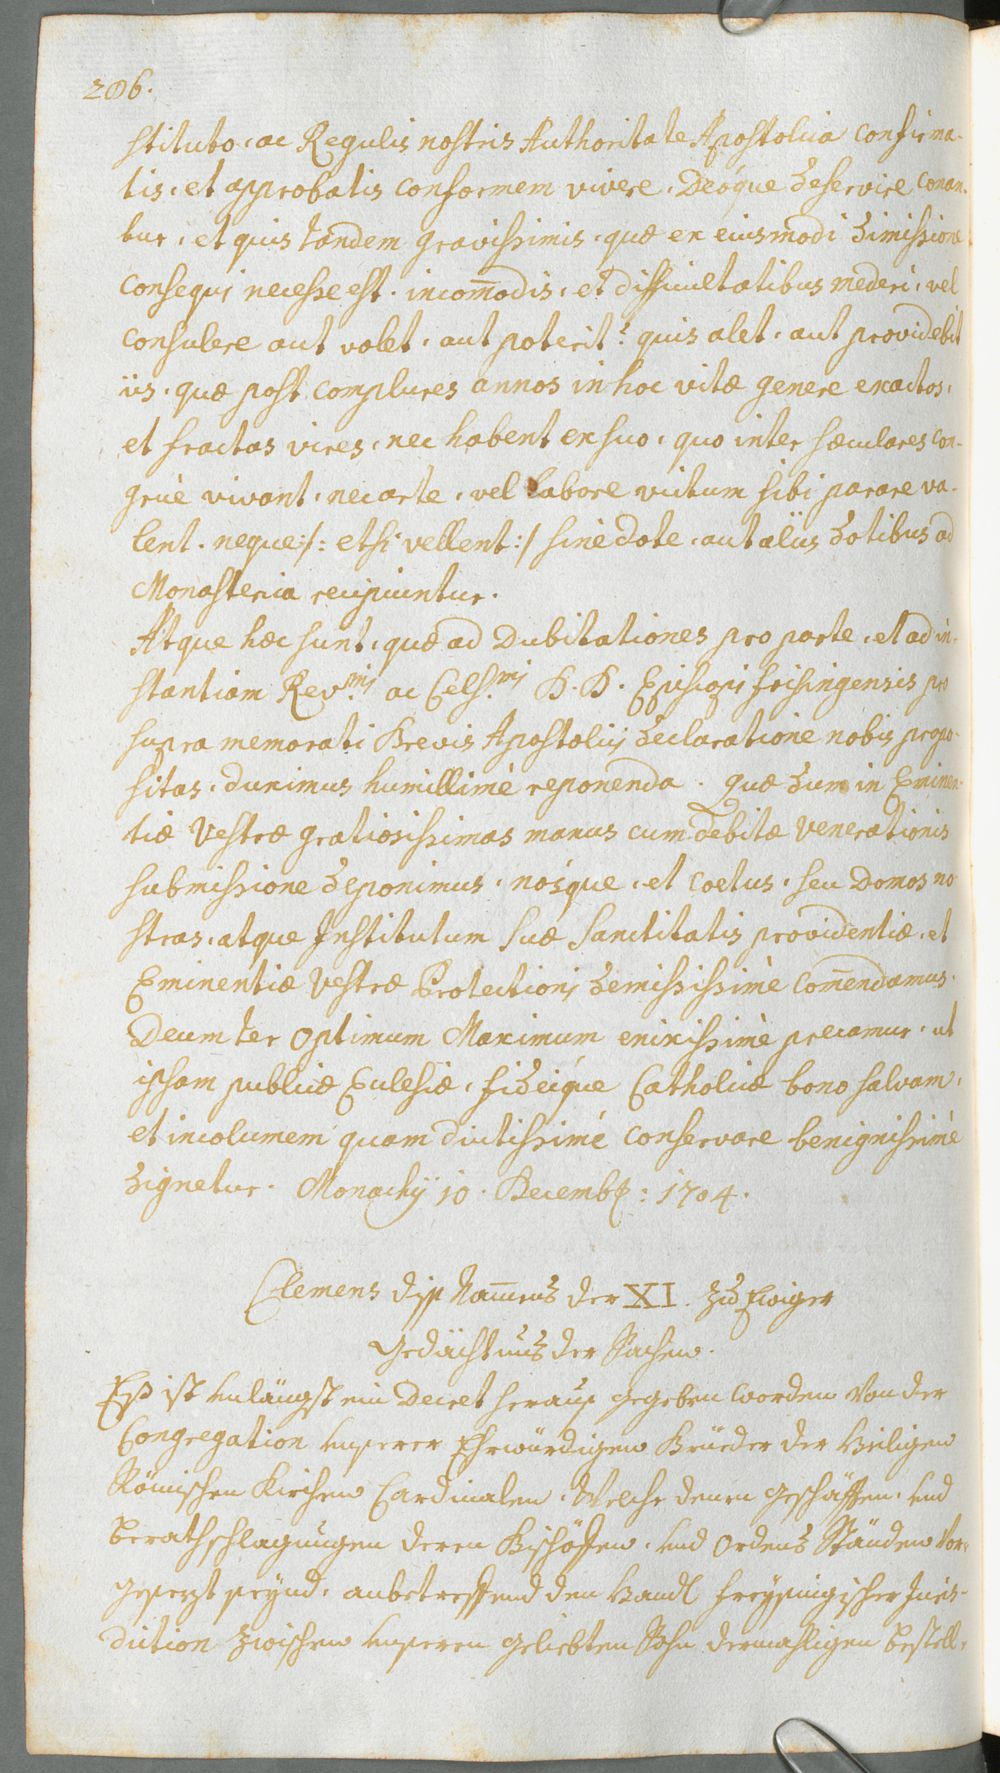 206.
stituto, ac Regulis nostris Authoritate Apostolica confirma-
tis, et approbatis conformem vivere, Deóque deservire conan-
tur, et quis tandem gravissimis, quæ ex eiusmodi dimissione
consequi necesse est, incom̄odis, et difficultatibus mederi, vel
consulere aut volet, aut poterit? quis alet, aut providebit
iis, quæ post complures annos in hoc vitæ genere exactos,
et fractas vires, nec habent ex suo, quo inter sæculares con-
grùe vivant, nec arte, vel labore victum sibi parare va-
lent, neque /: etsi vellent :/ sine dote, aut aliis dotibus ad
Monasteria recipiuntur.
Atque hæc sunt, quæ ad Dubitationes pro parte, et ad in-
stantiam Rev.mi ac Cels.mi D. D. Episcopi frisingensis pro
supra memorati Brevis Apostolici declaratione nobis propo-
sitas, duximus humillimè reponenda. Quæ dum in Eminen-
tiæ Vestræ gratiosissimas manus cum debitæ venerationis
submissione deponimus, nósque, et coetus, seu Domos no
stras, atque Institutum suæ Sanctitatis providentiæ, et
Eminentiæ Vestræ Protectioni demississimè com̄endamus.
Deum ter optimum Maximum enixissimè precamur, ut
ipsam publicæ Ecclesiæ, fideíque Catholicæ bono salvam,
et incolumem quam diutissimè conservare benignissimè
dignetur. Monachij 10. Decemb: 1704.
Clemens diß Nam̄ens der XI. Zu Ewiger
gedächtnus der Sachen.
Eß ist unlängst ein Decret herauß gegeben worden von der
Congregation unserer Ehrwürdigen Brüeder der Heiligen
Römischen Kirchen Cardinalen, Welche denen geschäfften, und
berathschlagungen deren Bischöffen, und Ordens Ständen Vor-
gesezt seynd, anbetreffend den Handl freysingischer Juris-
diction zwischen unseren geliebten Sohn dermahligen bestell-